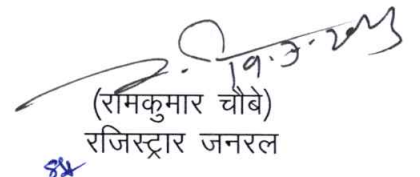 19.7.2023
(रामकुमार चौबे)
रजिस्ट्रार जनरल